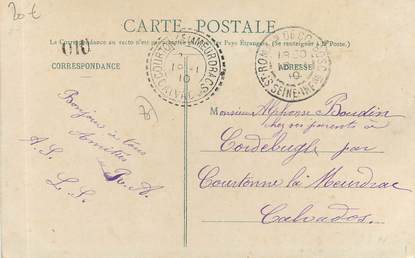 20€
CARTE POSTALE
La Correspondance au recto n'est pas pays Étrangers. (Se renseigner à la Poste).
CORRESPONDANCE
ADRESSE
OIU
10
ST ROMAIN DE COLBOSC
SEINE-INFRE
Bonjour à tous
Amitiés
A. S.
L. S.
Monsieur Alphonse Boudin
chez ses parents à
Cordebugle par
Courtonne la Meurdrac
Calvados.